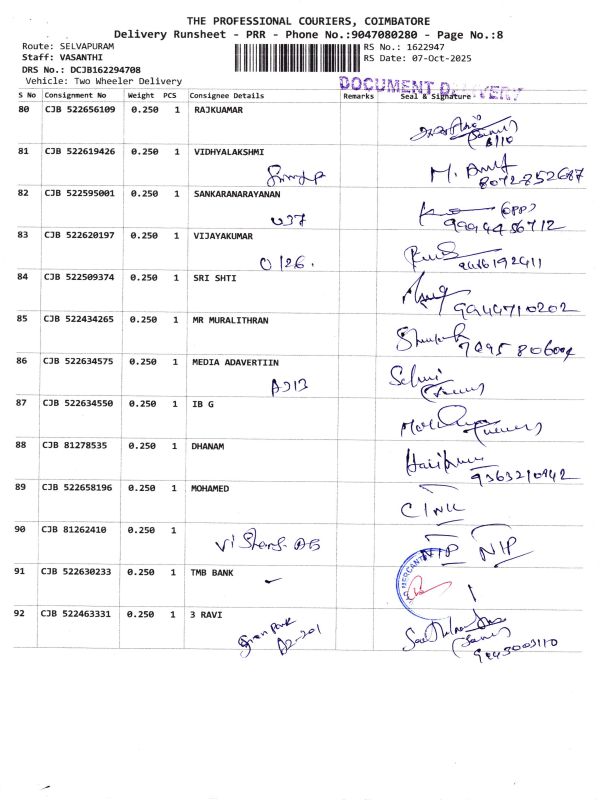 THE PROFESSIONAL COURIERS, COIMBATORE
Delivery Runsheet - PRR - Phone No.:9047080280 - Page No.:8
Route: SELVAPURAM RS No.: 1622947
Staff: VASANTHI RS Date: 07-Oct-2025
DRS No.: DCJB162294708
Vehicle: Two Wheeler Delivery DOCUMENT DELIVERY
S No Consignment No Weight PCS Consignee Details Remarks Seal & Signature
80 CJB 522656109 0.250 1 RAJKUAMAR
81 CJB 522619426 0.250 1 VIDHYALAKSHMI
8072852687
82 CJB 522595001 0.250 1 SANKARANARAYANAN
U37 (OPP) 9994456712
83 CJB 522620197 0.250 1 VIJAYAKUMAR
O/26.
84 CJB 522509374 0.250 1 SRI SHTI
9944710202
85 CJB 522434265 0.250 1 MR MURALITHRAN
86 CJB 522634575 0.250 1 MEDIA ADAVERTIIN
A313 Selvi
87 CJB 522634550 0.250 1 IB G
88 CJB 81278535 0.250 1 DHANAM
9363210942
89 CJB 522658196 0.250 1 MOHAMED
90 CJB 81262410 0.250 1
NIP NIP
91 CJB 522630233 0.250 1 TMB BANK
MERCAN
92 CJB 522463331 0.250 1 3 RAVI
A2-201